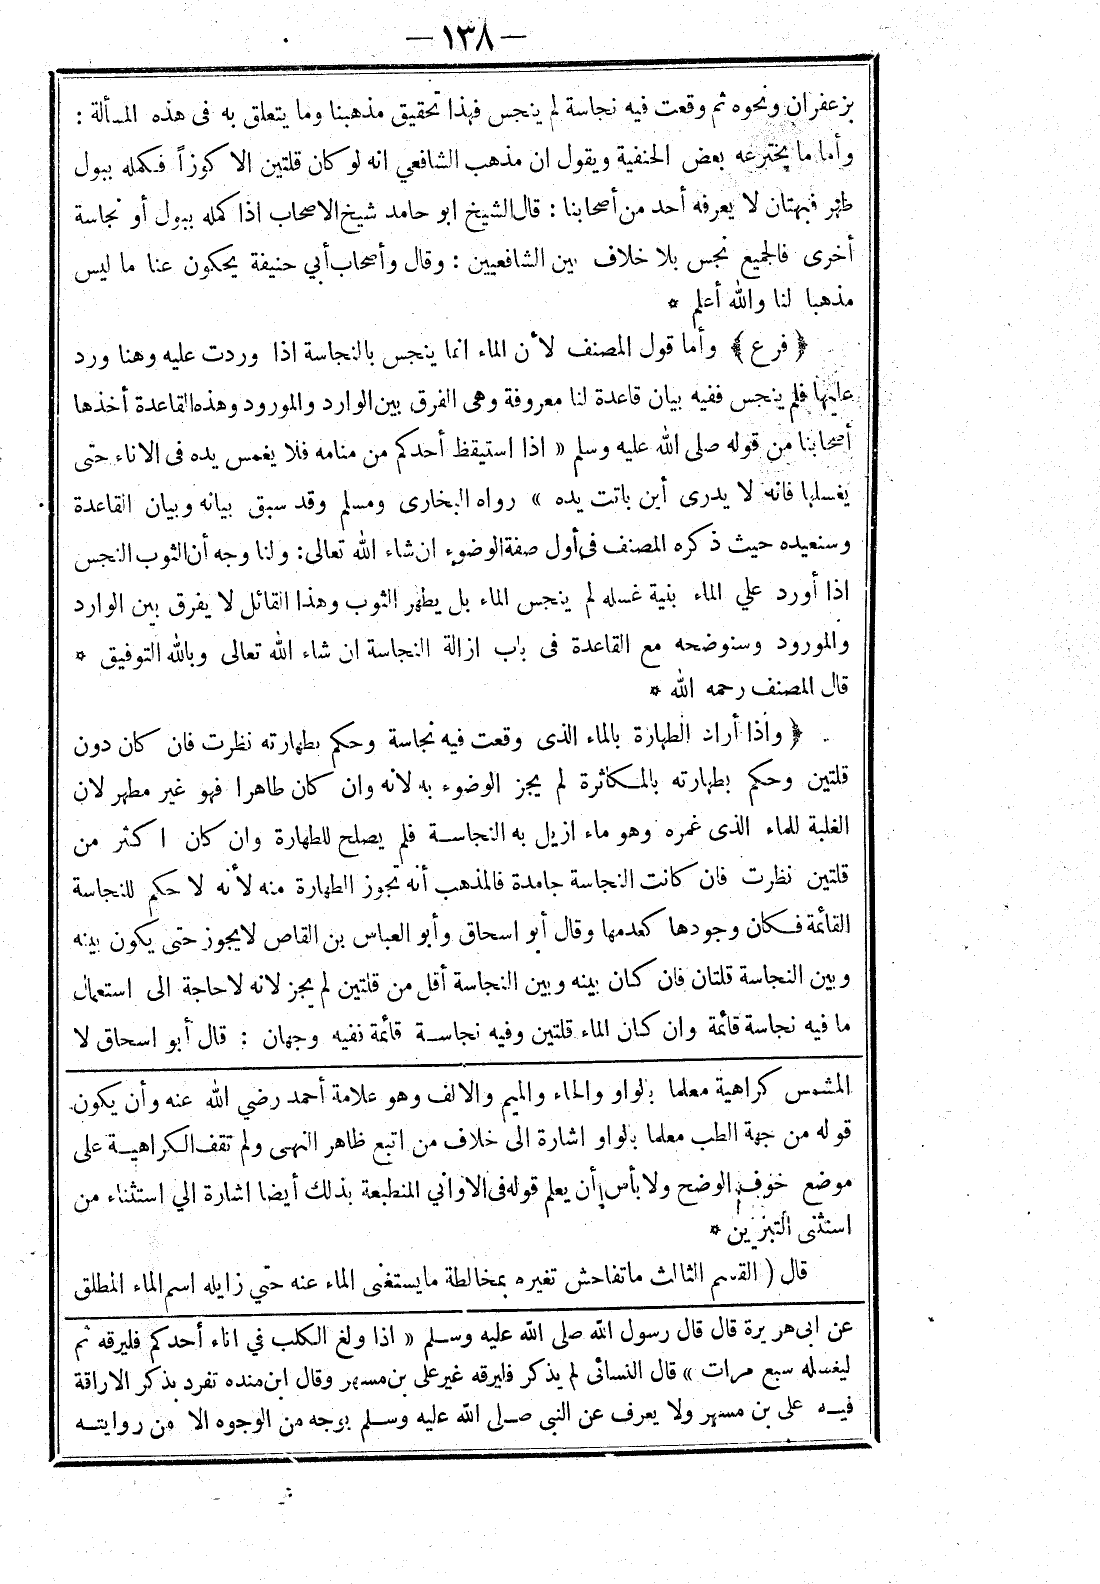 — ١٣٨ —
بزعفران ونحوه ثم وقعت فيه نجاسة لم ينجس فهذا تحقيق مذهبنا وما يتعلق به فى هذه المسألة :
وأما ما يخترعه بعض الحنفية ويقول ان مذهب الشافعي انه لو كان قلتين الا كوزاً فكمله ببول
طهر فبهتان لا يعرفه أحد من أصحابنا : قال الشيخ ابو حامد شيخ الاصحاب اذا كمله ببول أو نجاسة
أخرى فالجميع نجس بلا خلاف بين الشافعيين : وقال وأصحاب أبي حنيفة يحكون عنا ما ليس
مذهبا لنا والله أعلم *
﴿ فرع ﴾ وأما قول المصنف لأن الماء انما ينجس بالنجاسة اذا وردت عليه وهنا ورد
عليها فلم ينجس ففيه بيان قاعدة لنا معروفة وهى الفرق بين الوارد والمورود وهذه القاعدة أخذها
أصحابنا من قوله صلى الله عليه وسلم « اذا استيقظ أحدكم من منامه فلا يغمس يده فى الاناء حتى
يغسلها فانه لا يدرى أين باتت يده » رواه البخارى ومسلم وقد سبق بيانه وبيان القاعدة
وسنعيده حيث ذكره المصنف في أول صفة الوضوء ان شاء الله تعالى: ولنا وجه أن الثوب النجس
اذا أورد علي الماء بنية غسله لم ينجس الماء بل يطهر الثوب وهذا القائل لا يفرق بين الوارد
والمورود وسنوضحه مع القاعدة فى باب ازالة النجاسة ان شاء الله تعالى وبالله التوفيق *
قال المصنف رحمه الله *
﴿ واذا أراد الطهارة بالماء الذى وقعت فيه نجاسة وحكم بطهارته نظرت فان كان دون
قلتين وحكم بطهارته بالمكاثرة لم يجز الوضوء به لانه وان كان طاهرا فهو غير مطهر لان
الغلبة للماء الذى غمره وهو ماء ازيل به النجاسة فلم يصلح للطهارة وان كان اكثر من
قلتين نظرت فان كانت النجاسة جامدة فالمذهب أنه تجوز الطهارة منه لأنه لا حكم للنجاسة
القائمة فكان وجودها كعدمها وقال أبو اسحاق وأبو العباس بن القاص لا يجوز حتى يكون بينه
وبين النجاسة قلتان فان كان بينه وبين النجاسة أقل من قلتين لم يجز لانه لا حاجة الى استعمال
ما فيه نجاسة قائمة وان كان الماء قلتين وفيه نجاسة قائمة نفيه وجهان : قال أبو اسحاق لا
المشمس كراهية معلما بالواو والحاء والميم والالف وهو علامة أحمد رضي الله عنه وأن يكون
قوله من جهة الطب معلما بالواو اشارة الى خلاف من اتبع ظاهر النهى ولم تقف الكراهية على
موضع خوف الوضح ولا بأس أن يعلم قوله فى الاواني المنطبعة بذلك أيضا اشارة الي استثناء من
استثنى التبرين *
قال ( القسم الثالث ماتفاحش تغيره بمخالطة مايستغنى الماء عنه حتي زايله اسم الماء المطلق
عن ابى هريرة قال قال رسول الله صلى الله عليه وسلم « اذا ولغ الكلب في اناء أحدكم فليرقه ثم
ليغسله سبع مرات » قال النسائى لم يذكر فليرقه غير على بن مسهر وقال ابن منده تفرد بذكر الاراقة
فيه على بن مسهر ولا يعرف عن النبى صلى الله عليه وسلم بوجه من الوجوه الا من روايته